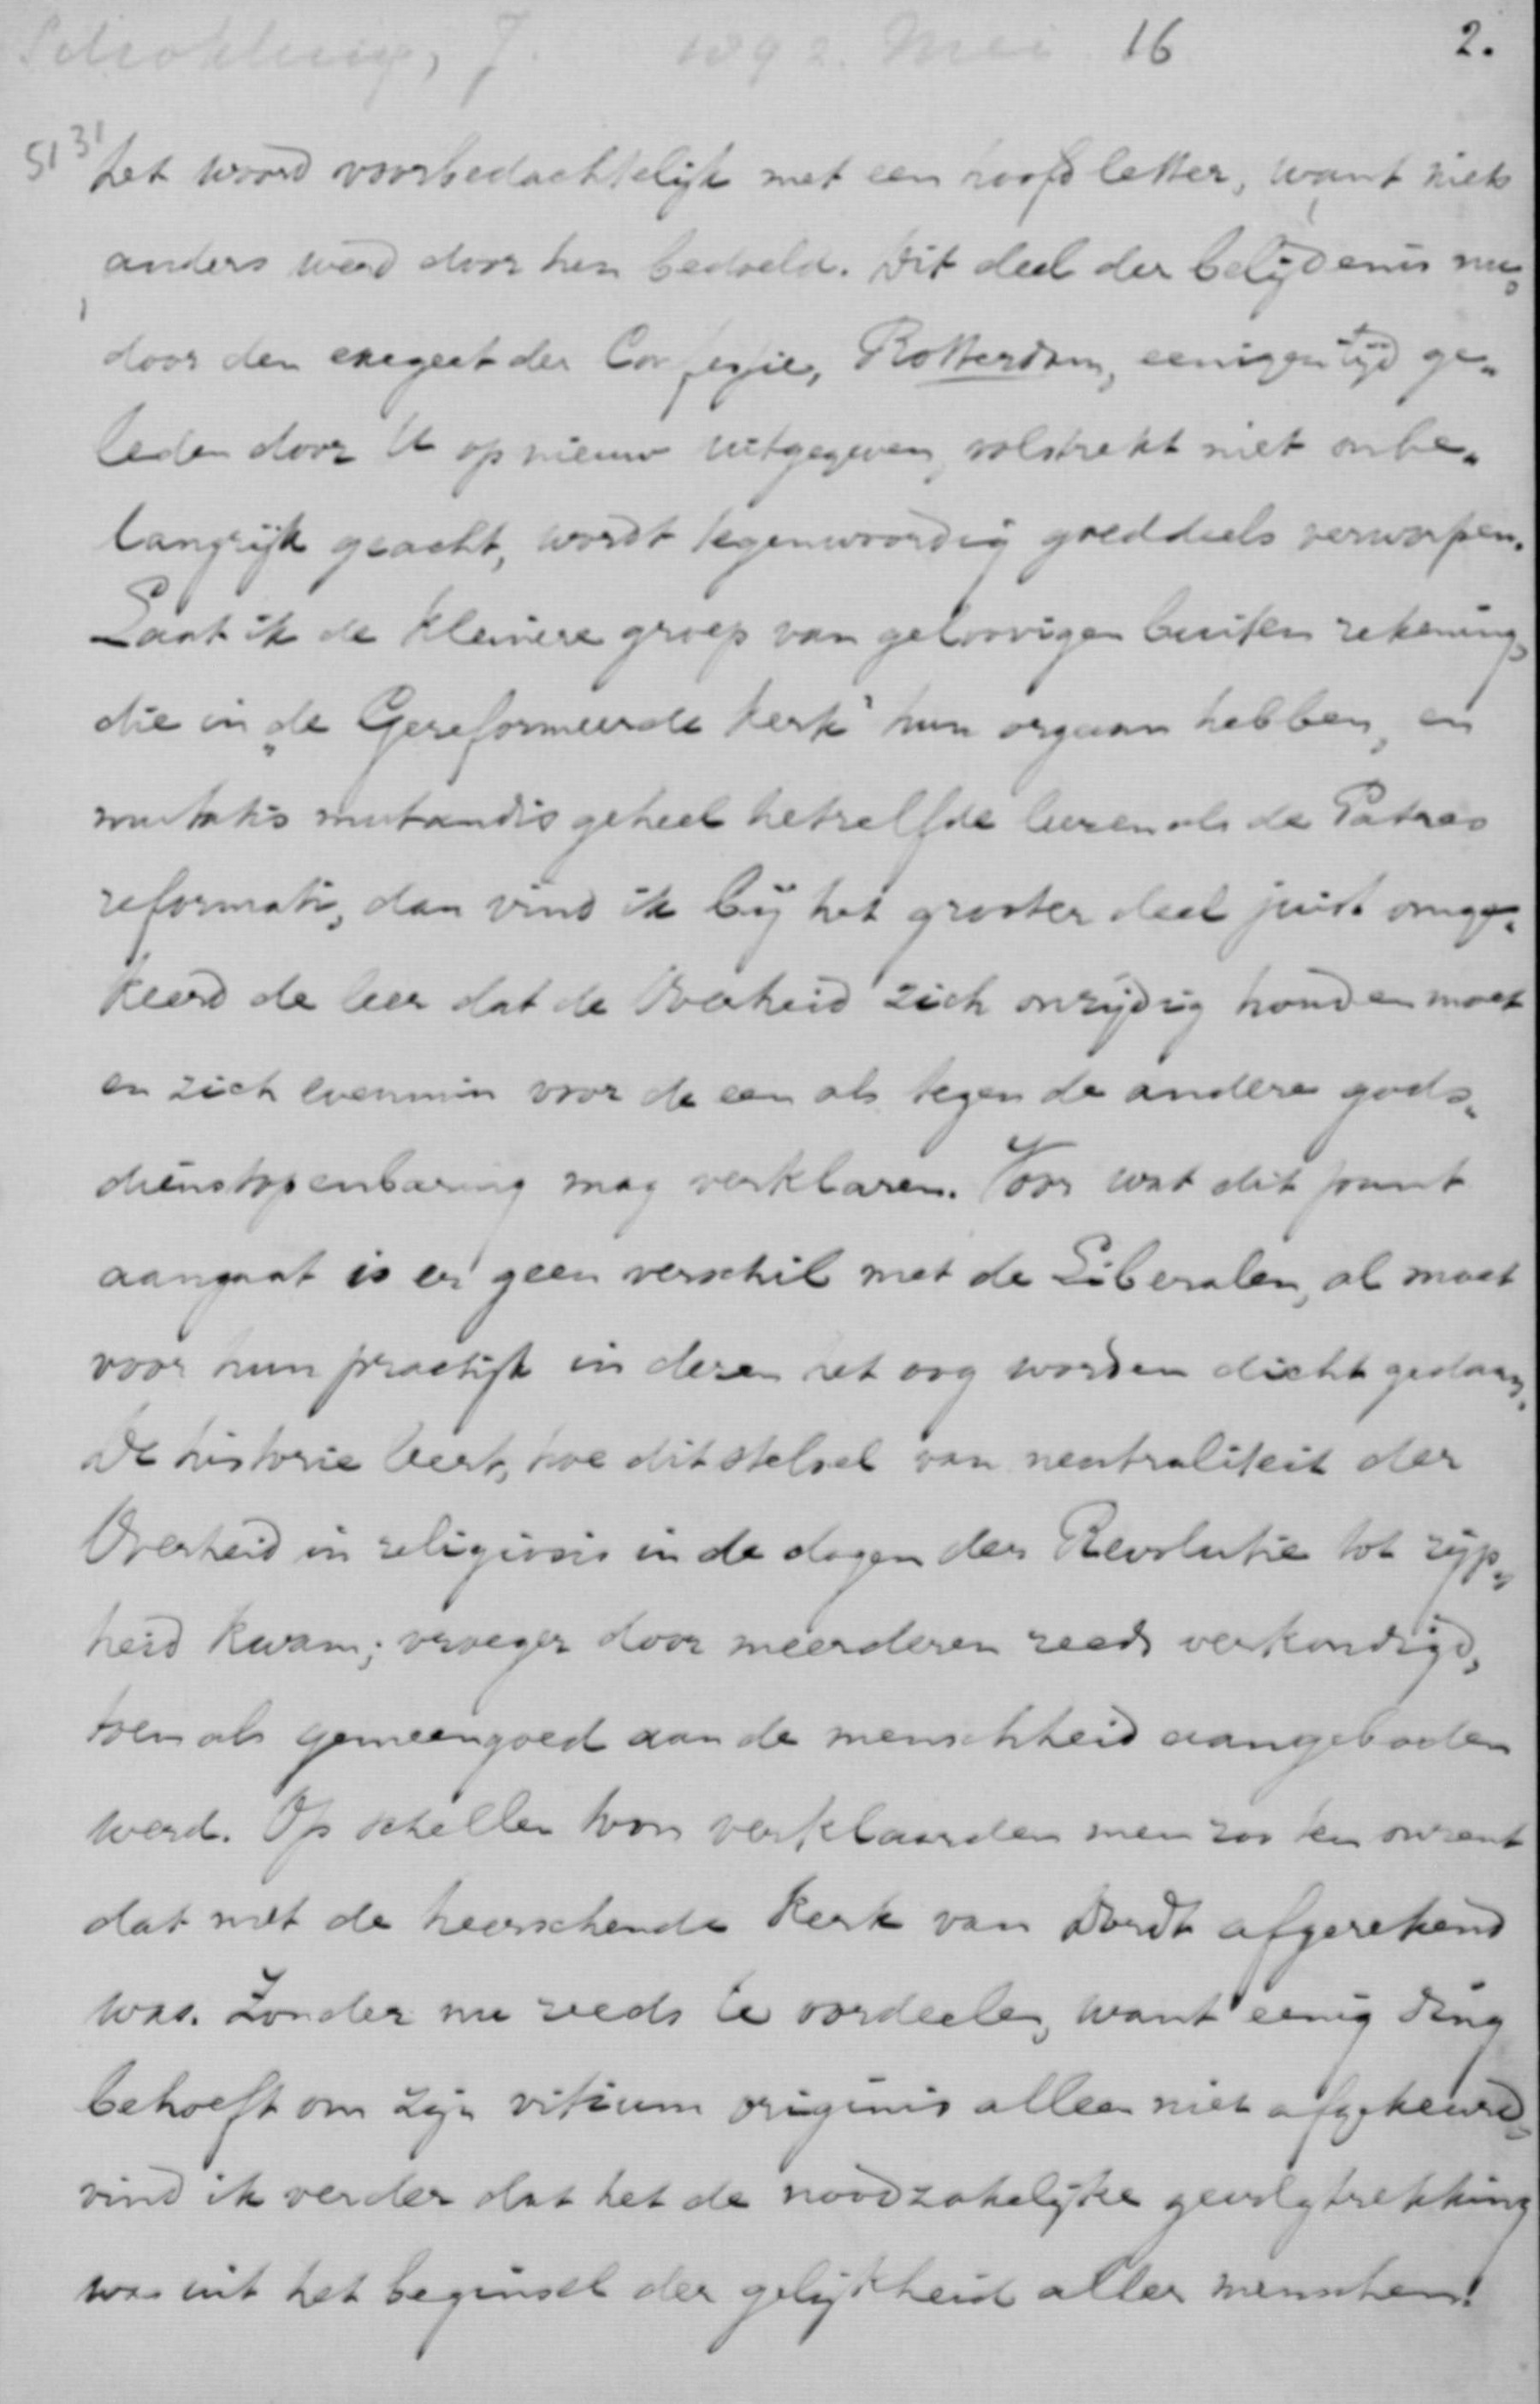 Schokking, J. 1892. Mei 16 2.
5131
het woord voorbedachtelijk met een hoofdletter, want niets
anders werd door hen bedoeld. Dit deel der belijdenis nu,
door den exegeet der Confessie, Rotterdam, eenigen tijd ge„
leden door U op nieuw uitgegeven, volstrekt niet onbe„
langrijk geacht, wordt tegenwoordig goeddeels verworpen.
Laat ik de kleinere groep van geloovigen buiten rekening,
die in „de Gereformeerde Kerk" hun orgaan hebben, en
mutatis mutandis geheel hetzelfde leeren als de Patres
reformati, dan vind ik bij het grooter deel juist omge„
keerd de leer dat de Overheid zich onzijdig houden moet
en zich evenmin voor de een als tegen de andere gods„
dienstopenbaring mag verklaren. Voor wat dit punt
aangaat is er geen verschil met de Liberalen, al moet
voor hun practijk in dezen het oog worden dicht gedaan.
De historie leert, hoe dit stelsel van neutraliteit der
Overheid in religiosis in de dagen der Revolutie tot rijp„
heid kwam; vroeger door meerderen reeds verkondigd,
toen als gemeengoed aan de menschheid aangeboden
werd. Op schellen toon verklaarden men zoo ten onzent
dat met de heerschende Kerk van Dordt afgerekend
was. Zonder nu reeds te oordeelen, want eenig ding
behoeft om zijn vitium originis alleen niet afgekeurd,
vind ik verder dat het de noodzakelijke gevolgtrekking
was uit het beginsel der gelijkheid aller menschen!